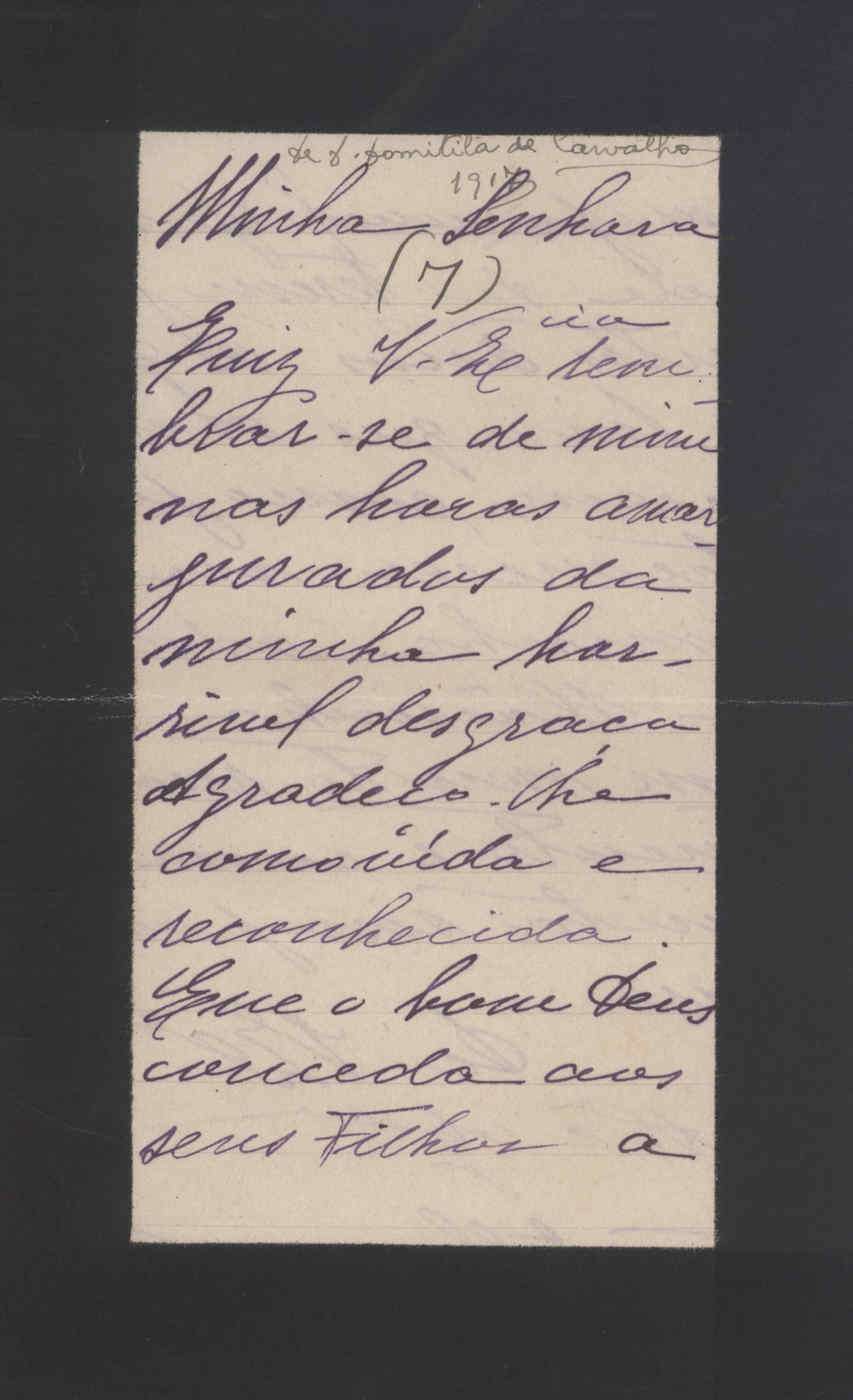 de D. Domitila de Carvalho
1917
Minha Senhora
(7)
Quiz V. Excia lem-
brar-se de mim
nas horas amar-
guradas da
minha hor-
rivel desgraça
Agradeço-lhe
comovida e
reconhecida.
Que o bom Deus
conceda aos
seus Filhos a